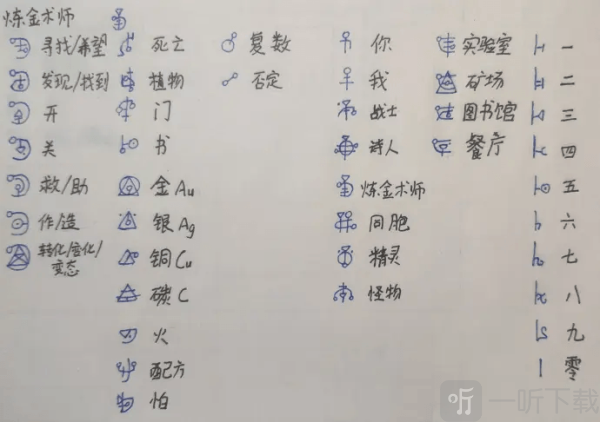 炼金术师
寻找/希望 死亡 复数 你 实验室 一
发现/找到 植物 否定 我 矿场 二
开 门 战士 图书馆 三
关 书 诗人 餐厅 四
救/助 金Au 炼金术师 五
作/造 银Ag 同胞 六
转化/合化/变态 铜Cu 精灵 七
碳C 怪物 八
火 九
配方 零
怕
听 一听下载